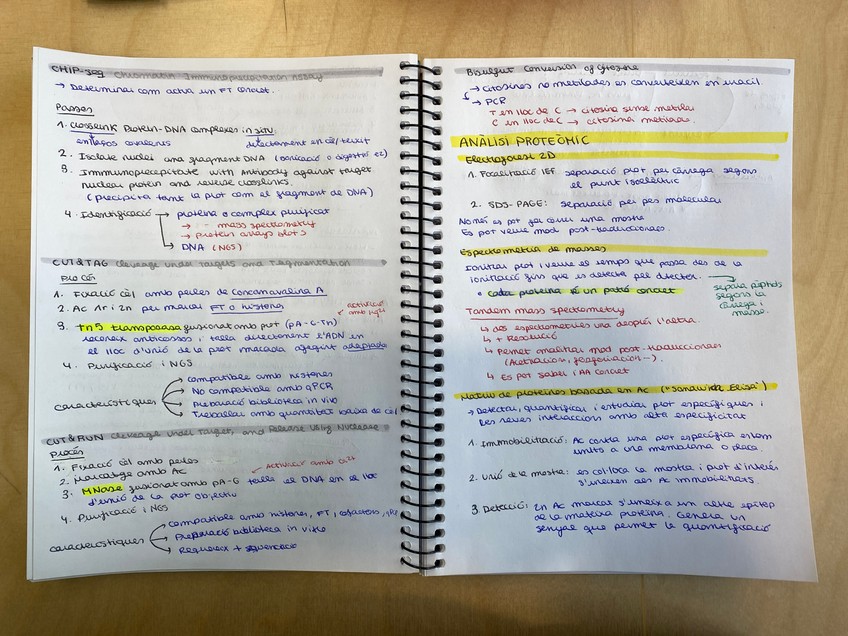 CHIP-seq Chromatin Immunoprecipitation Assay
→ Determinar com actua un FT concret.
Passos
1. Crosslink Protein-DNA complexes in situ.
enllaços covalents directament en cèl/teixit
2. Isolate nuclei and fragment DNA (sonicació o digestió ez)
3. Immunoprecipitate with antibody against target
nuclear protein and reverse crosslinks.
(precipita tant la prot com el fragment de DNA)
4. Identificació → proteïna o complex purificat
→ mass spectrometry
→ protein arrays blots
→ DNA (NGS)
CUT&TAG Cleavage under targets and Tagmentation
Procés
1. Fixació cèl amb perles de Concanavalina A
2. Ac 1r i 2n per marcar FT o histones
activació
amb Mg2+
3. Tn5 transposasa fusionat amb prot (pA-G-Tn)
reconeix anticossos i talla directament l'ADN en
el lloc d'unió de la prot marcada afegint adaptadors
4. Purificació i NGS
característiques
compatible amb histones
No compatible amb qPCR
Preparació biblioteca in vivo
Treballar amb quantitat baixa de cèl
CUT&RUN Cleavage under Target, and Release Using Nuclease
Procés
1. Fixació cèl amb perles
2. Marcatge amb Ac
→ Activació amb Ca2+
3. MNase fusionat amb pA-G talla el DNA en el lloc
d'unió de la prot objectiu
4. Purificació i NGS
característiques
compatible amb histones, FT, cofactors,
Preparació biblioteca in vitro
Requereix + seqüenciació
Bisulfit Conversion of Cytosine
→ Citosines no metilades es converteixen en uracil.
→ PCR
T en lloc de C → citosina sense metilar
C en lloc de C → citosina metilada.
ANÀLISI PROTEÒMIC
Electroforesi 2D
1. Focalització IEF: separació prot per càrrega segons
el punt isoelèctric
2. SDS-PAGE: separació per pes molecular
Només es pot fer córrer una mostra
Es pot veure mod post-traduccionals.
Espectrometria de masses
Ionitzar prot i veure el temps que passa des de la
ionització fins que es detecta pel detector.
• Cada proteïna té un patró concret
→ separa pèptids
segons la
càrrega i
massa.
Tandem mass spectrometry
↳ dos espectrometries una després l'altra
↳ + Resolució
↳ Permet analitzar mod post-traduccionals
(Acetilacions, fosforilació...)
↳ Es pot saber l'AA concret
Matriu de proteïnes basada en Ac ("Sandwich Elisa")
→ Detectar, quantificar i estudiar prot específiques i
les seves interaccions amb alta especificitat
1. Immobilització: Ac contra una prot específica estan
units a una membrana o placa.
2. Unió de la mostra: es col·loca la mostra i prot d'interès
s'uneixen als Ac immobilitzats.
3. Detecció: Un Ac marcat s'uneix a un altre epítop
de la mateixa proteïna. Genera un
senyal que permet la quantificació